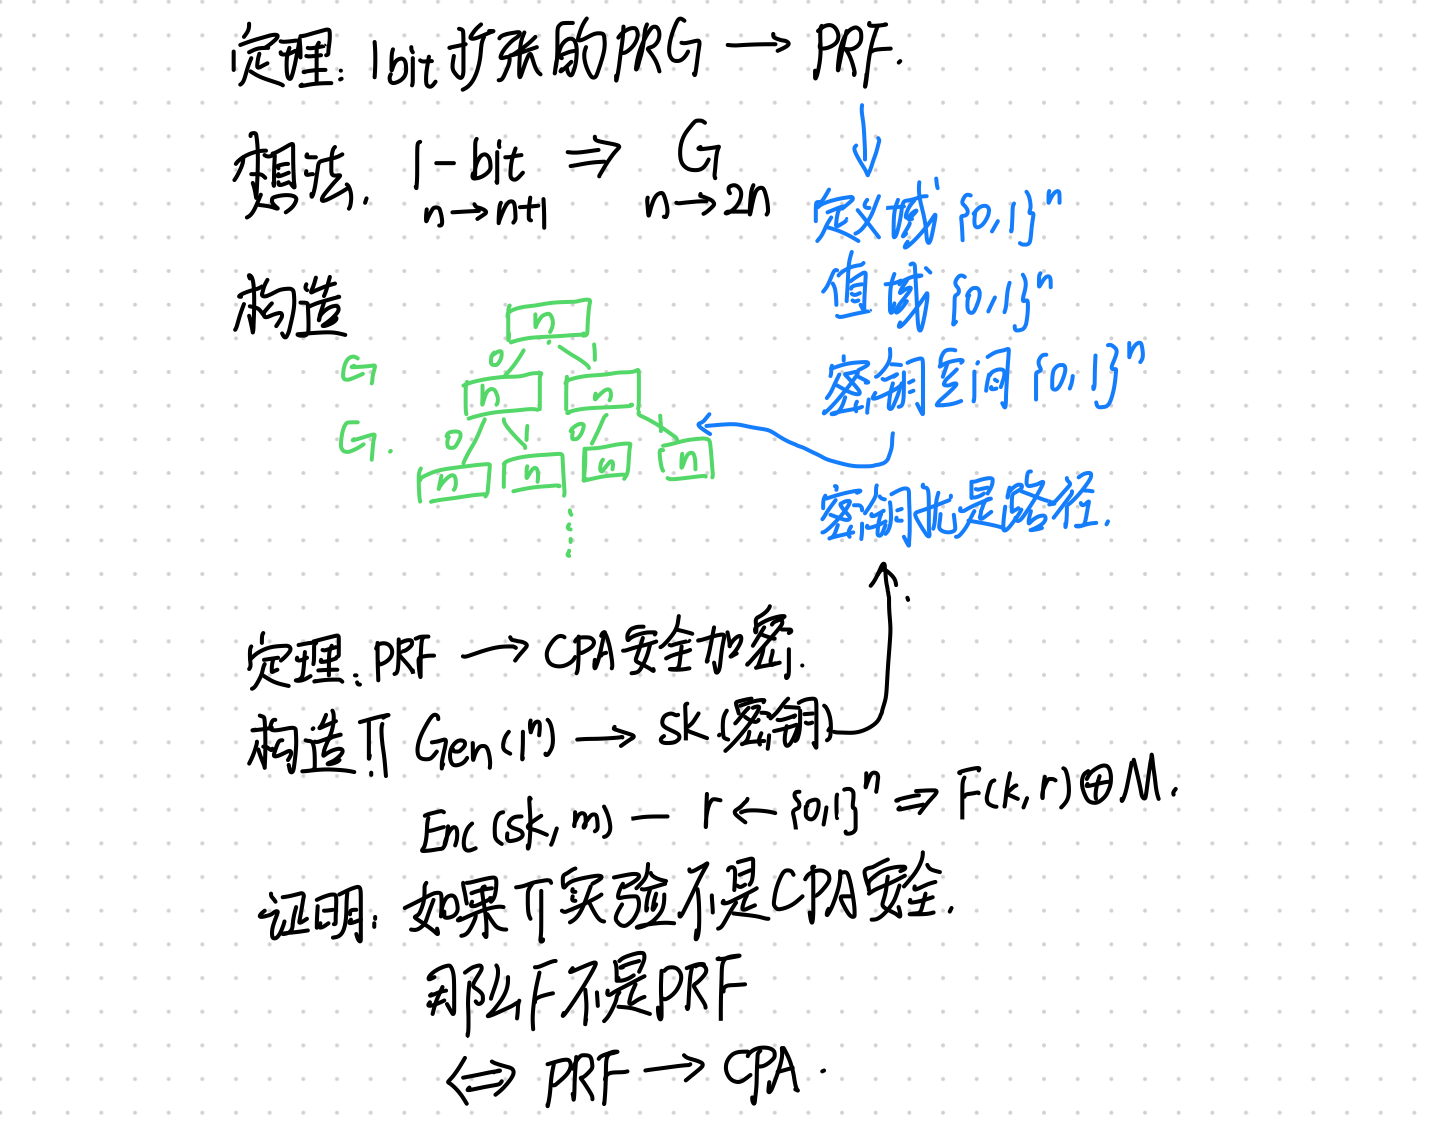 定理：1bit扩张的PRG → PRF.
想法. 1-bit ⇒ G
n→n+1 n→2n
定义域{0,1}^n
值域{0,1}^n
构造
n
密钥空间{0,1}^n
G 0 1
n n
G. 0 1 0 1
n n n n
密钥就是路径.
定理：PRF → CPA安全加密.
构造Π Gen(1^n) → sk(密钥)
Enc(sk,m) — r←{0,1}^n ⇒ F(k,r)⊕M.
证明：如果Π实验不是CPA安全.
那么F不是PRF
⇔ PRF → CPA.